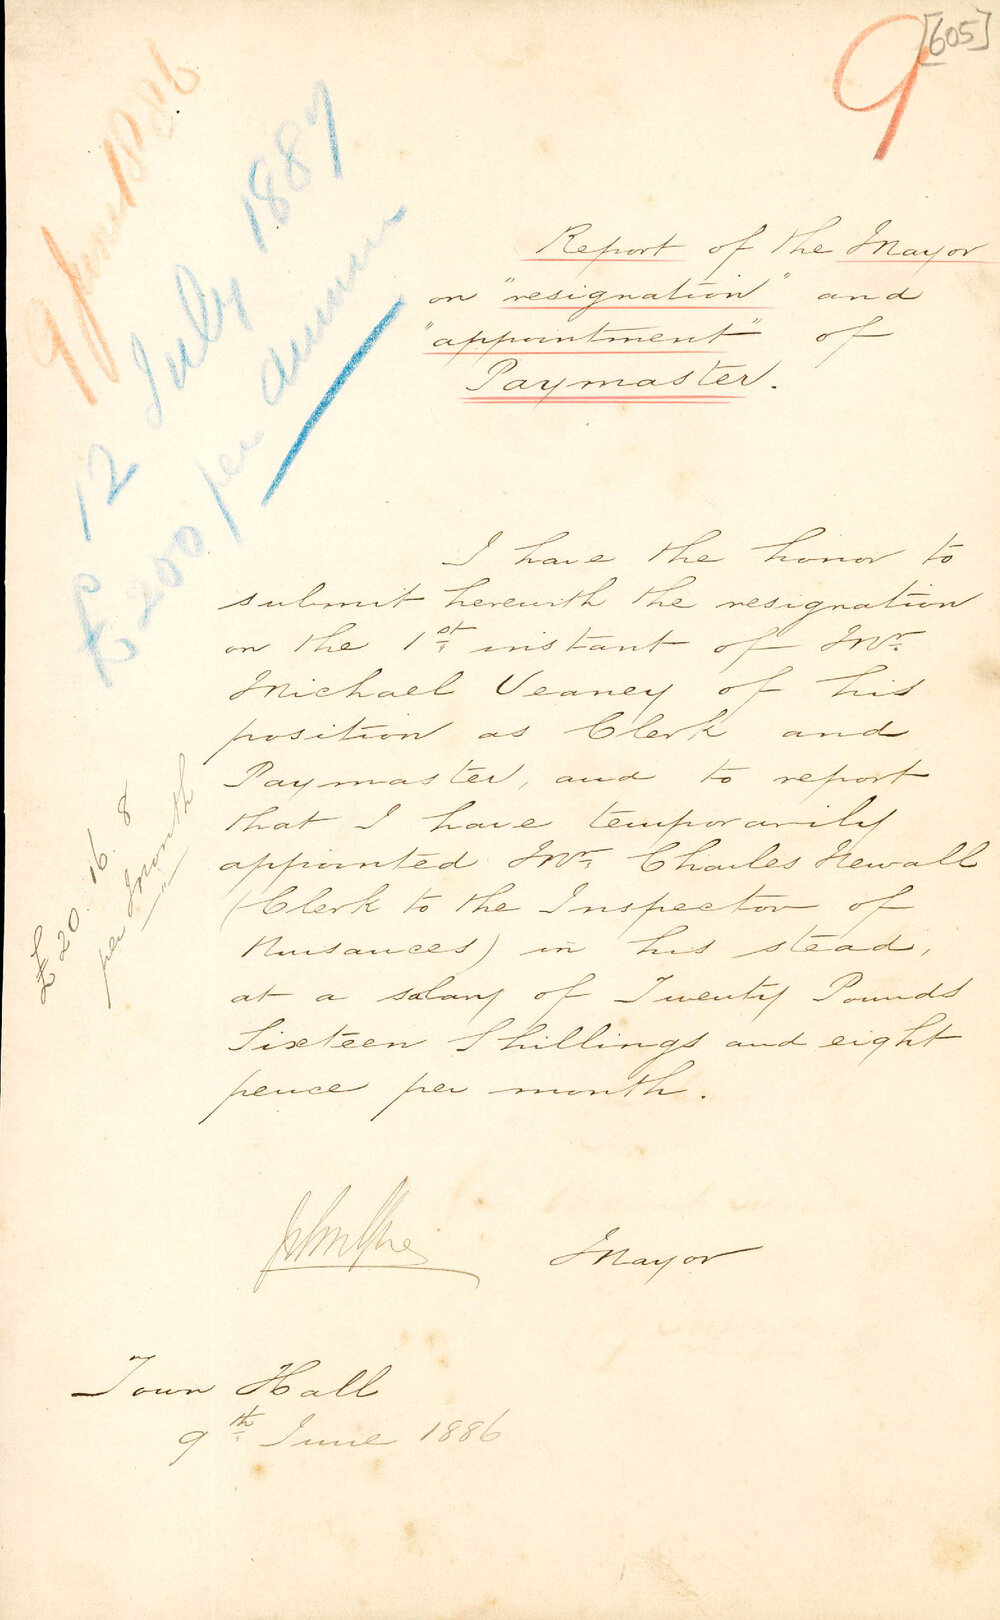 [605]
9
9 June 1886
12 July 1887
£200 per annum
Report of the Mayor
on "resignation" and
"appointment" of
Paymaster.
I have the honor to
submit herewith the resignation
on the 1st instant of Mr.
Michael Veaney of his
position as Clerk and
Paymaster, and to report
that I have temporarily
appointed Mr. Charles Newall
(Clerk to the Inspector of
Nuisances) in his stead,
at a salary of Twenty Pounds
Sixteen Shillings and eight
pence per month.
£20.16.8
per month
Mayor
Town Hall
9th June 1886